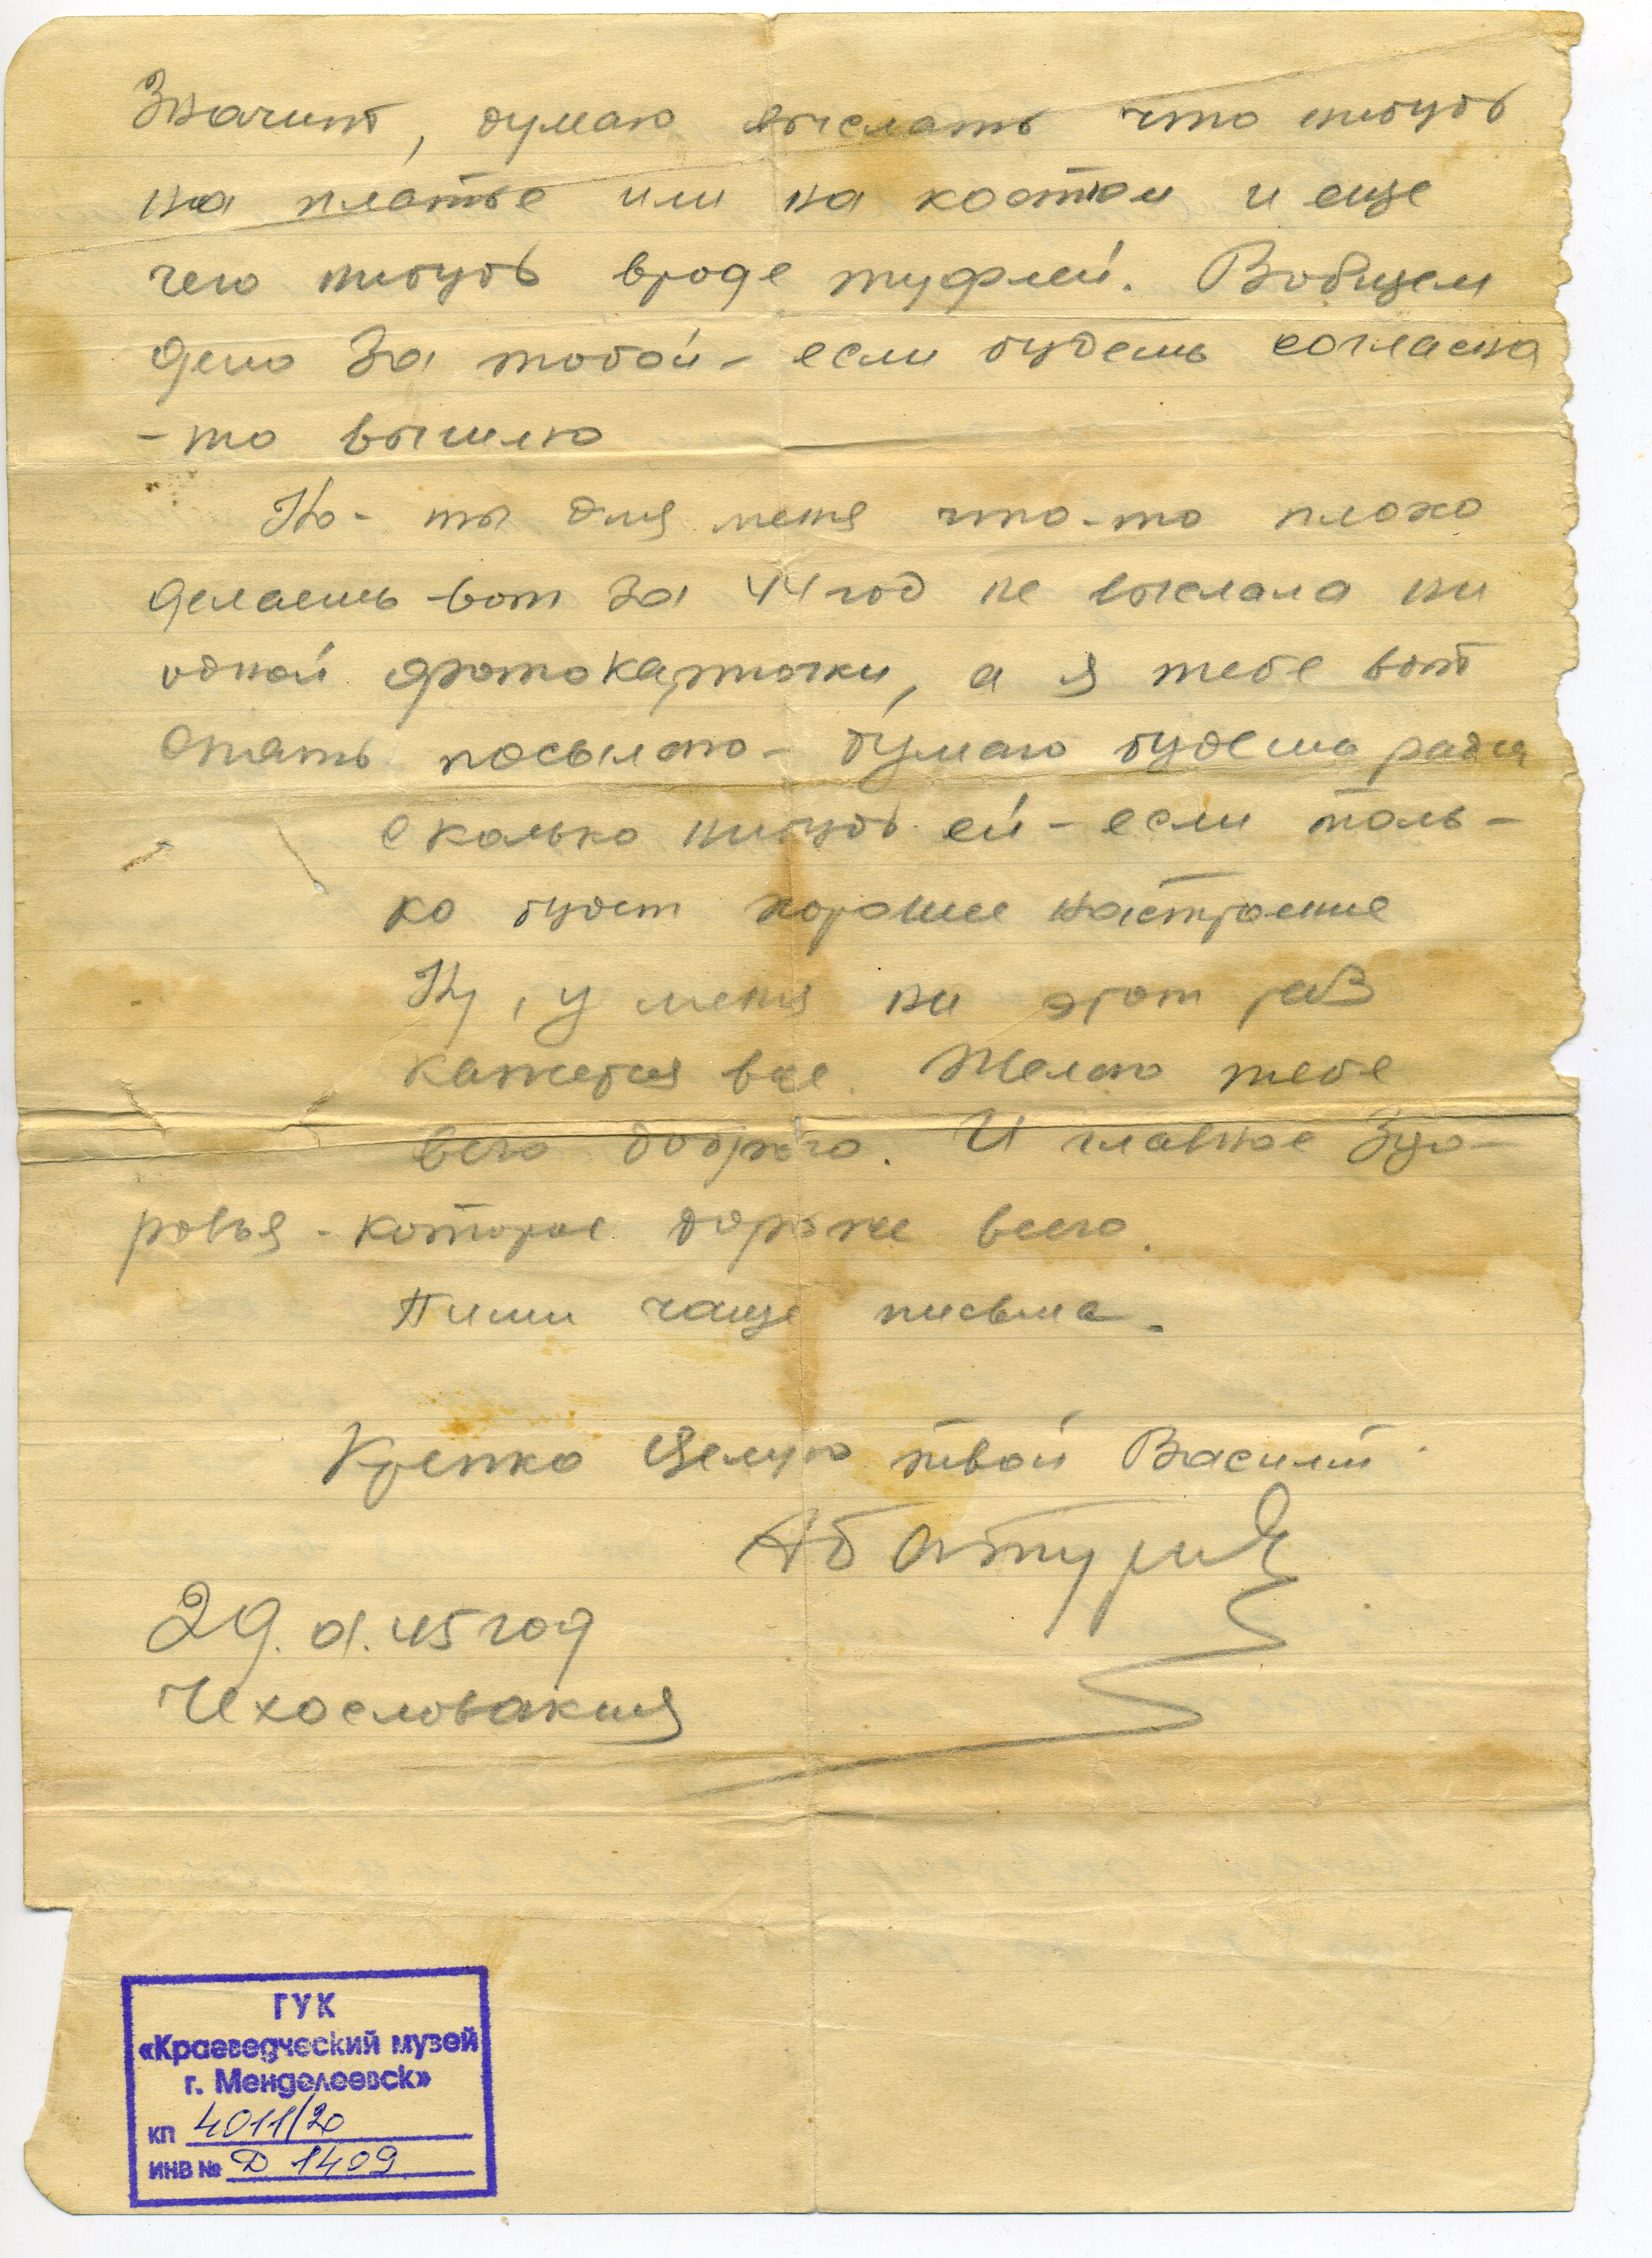 Значит, думаю выслать что нибудь
на платье или на костюм и еще
чего нибудь вроде туфлей. Вобщем
дело за тобой - если будешь согласна
- то вышлю
Но - ты для меня что-то плохо
делаешь вот за 44 год не выслала ни
одной фотокарточки, а я тебе вот
опять посылаю - думаю будешь рада
сколько нибудь ей - если толь-
ко будет хорошее настроение
Ну, у меня на этот раз
кажется все. Желаю тебе
всего доброго. И главное здо-
ровья - которое дороже всего.
Пиши чаще письма.
Крепко целую твой Василий
Абатурин
29. 01. 45 год
Чехословакия
ГУК
«Краеведческий музей
г. Менделеевск»
КП 4011/20
ИНВ № Д 1409